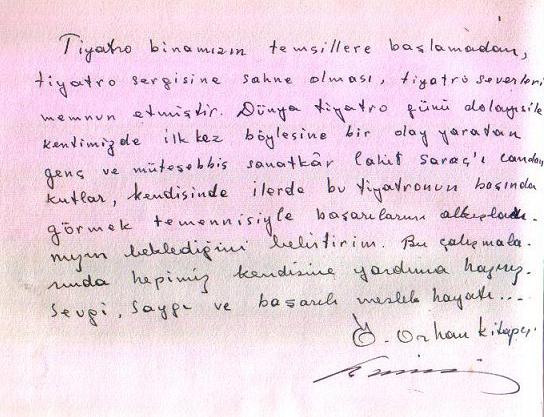 Tiyatro binamızın temsillere başlamadan,
tiyatro sergisine sahne olması, tiyatro severleri
memnun etmiştir. Dünya tiyatro günü dolayısile
kentimizde ilk kez böylesine bir olay yaratan
genç ve müteşebbis sanatkâr Cahit Saraç'ı candan
kutlar, kendisinde ilerde bu tiyatronun başında
görmek temennisiyle başarılarını
beklediğini belirtirim. Bu çalışmala-
rında hepimiz kendisine yardıma hazırız.
Sevgi, saygı ve başarılı meslek hayatı...
Ö. Orhan Kitapçı